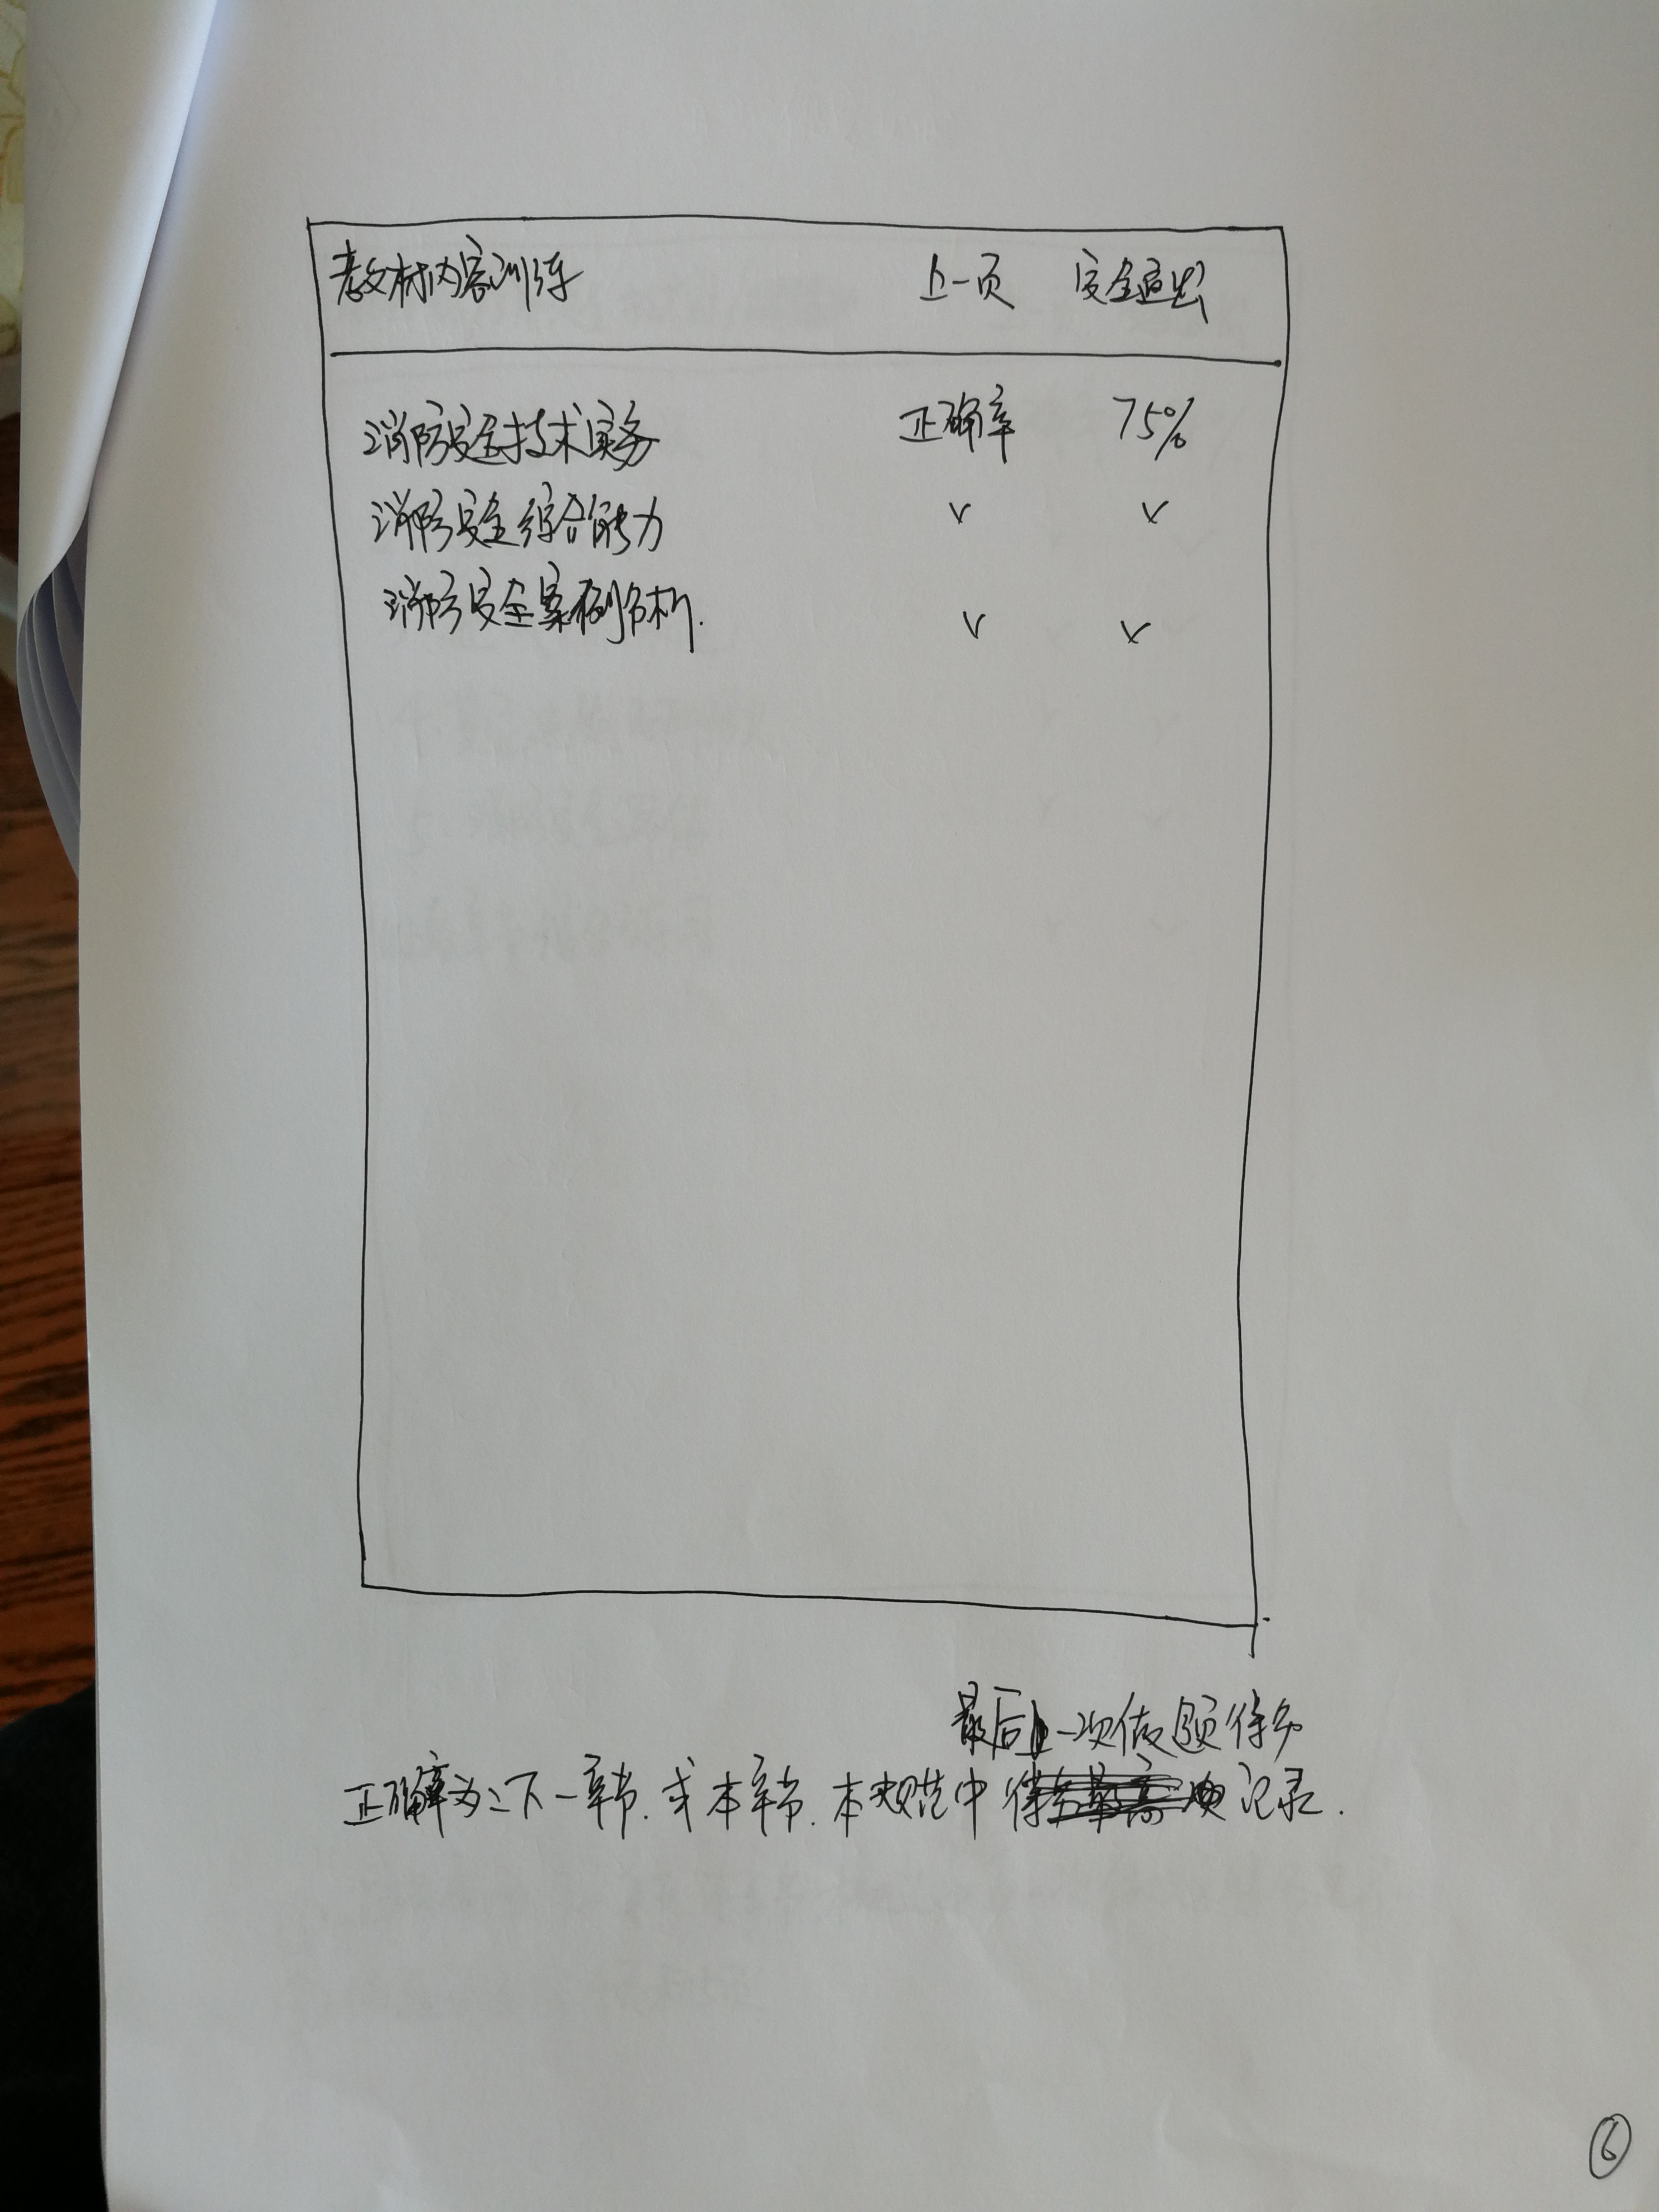 教材内容训练 上一页 安全退出
消防安全技术实务 正确率 75%
消防安全综合能力 ∨ ∨
消防安全案例分析. ∨ ∨
最后一次做题得分
正确率为:下一章节.或本章节.本规范中 记录.
6